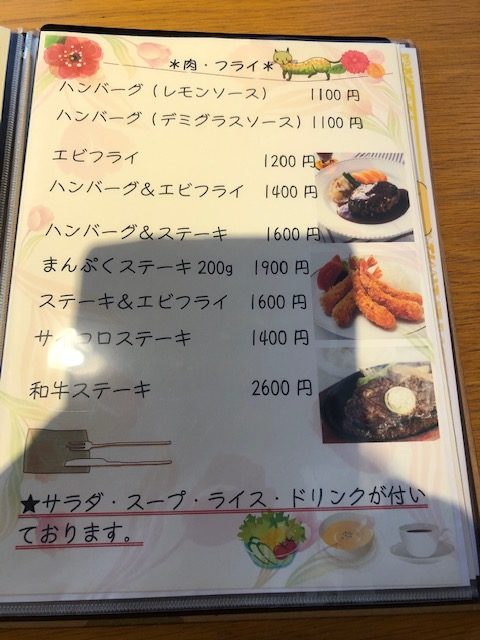 *肉・フライ*
ハンバーグ(レモンソース) 1100円
ハンバーグ(デミグラスソース) 1100円
エビフライ 1200円
ハンバーグ&エビフライ 1400円
ハンバーグ&ステーキ 1600円
まんぷくステーキ200g 1900円
ステーキ&エビフライ 1600円
サイコロステーキ 1400円
和牛ステーキ 2600円
★サラダ・スープ・ライス・ドリンクが付い
ております。